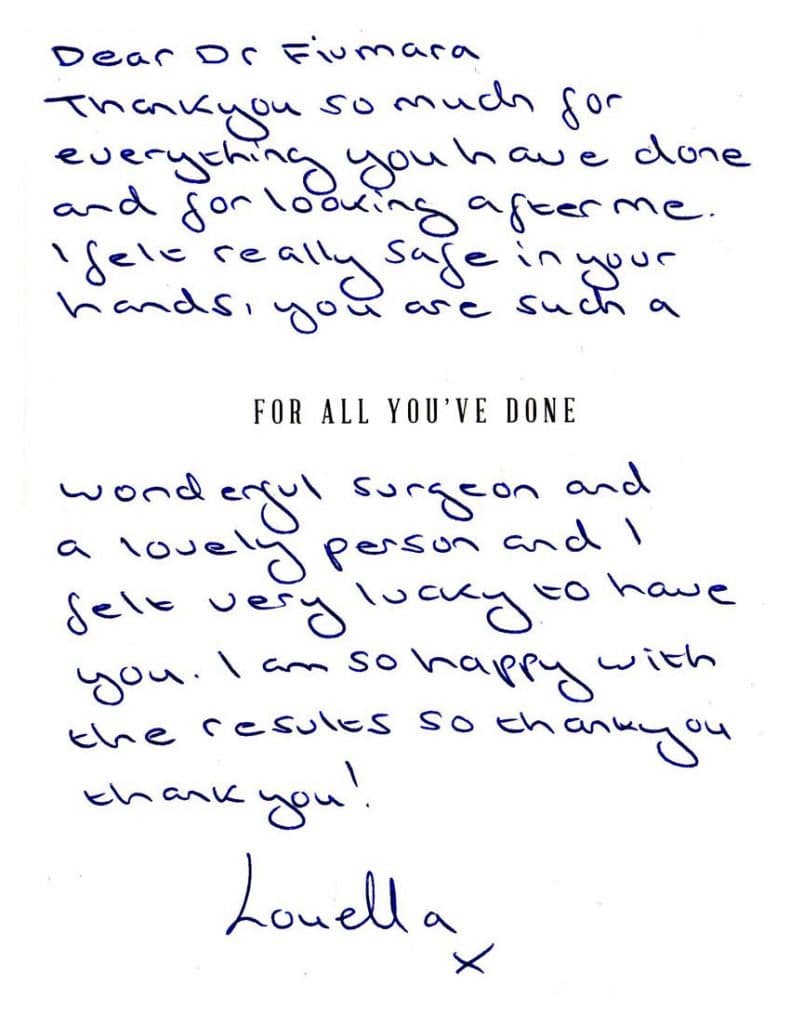 Dear Dr Fiumara
Thankyou so much for
everything you have done
and for looking after me.
I felt really safe in your
hands, you are such a
FOR ALL YOU'VE DONE
wonderful surgeon and
a lovely person and I
felt very lucky to have
you. I am so happy with
the results so thankyou
thank you!
Louella
x